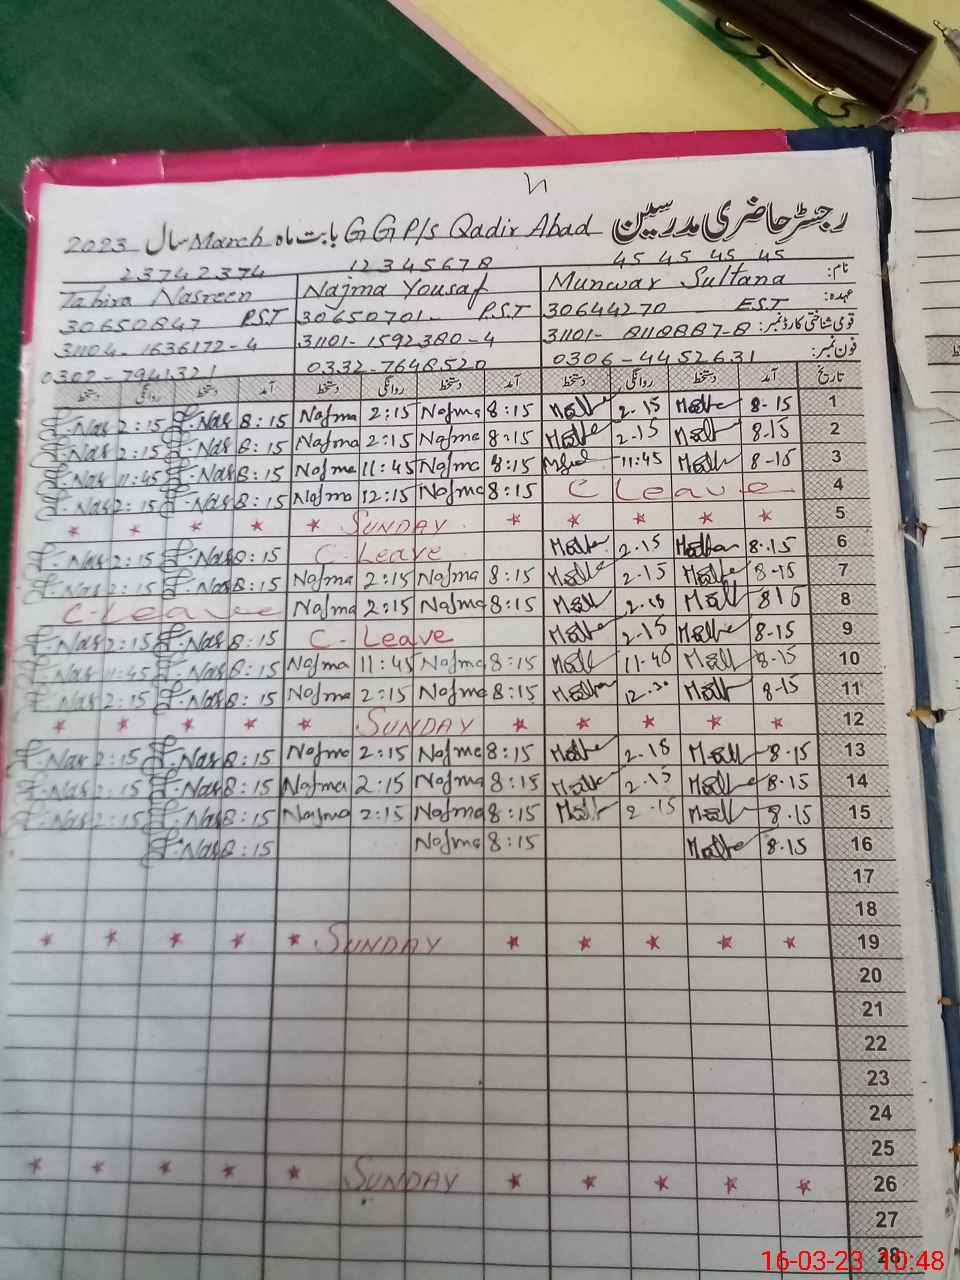 رجسٹر حاضری مدرسین G G P/s Qadir Abad بابت ماہ March سال 2023
نام: 45 45 45 45 12345678 23742374
Munwar Sultana Najma Yousaf Tahira Nasreen
عہدہ: 30644270 EST 30650701- PST 30650847 PST
قومی شناختی کارڈ نمبر: 31101- 8118887-8 31101-1592380-4 31104-1636172-4
فون نمبر: 0306-4452631 0332-7648520 0302-7941321
تاریخ آمد دستخط روانگی دستخط آمد دستخط روانگی دستخط آمد دستخط روانگی دستخط
1 8-15 2-15 8:15 Najma 2:15 Najma 8:15 T.Nas 2:15 T.Nas
2 8-15 2-15 8:15 Najma 2:15 Najma 8:15 T.Nas 2:15 T.Nas
3 8-15 11:45 8:15 Najma 11:45 Najma 8:15 T.Nas 11:45 T.Nas
4 C Leave 8:15 Najma 12:15 Najma 8:15 T.Nas 2:15 T.Nas
5 SUNDAY
6 8-15 2-15 C-Leave 8:15 T.Nas 2:15 T.Nas
7 8-15 2-15 8:15 Najma 2:15 Najma 8:15 T.Nas 2:15 T.Nas
8 815 2-15 8:15 Najma 2:15 Najma C-Leave
9 8-15 2-15 C-Leave 8:15 T.Nas 2:15 T.Nas
10 8-15 11-45 8:15 Najma 11:45 Najma 8:15 T.Nas 11:45 T.Nas
11 8-15 12-30 8:15 Najma 2:15 Najma 8:15 T.Nas 2:15 T.Nas
12 SUNDAY
13 8-15 2-15 8:15 Najma 2:15 Najma 8:15 T.Nas 2:15 T.Nas
14 8-15 2-15 8:15 Najma 2:15 Najma 8:15 T.Nas 2:15 T.Nas
15 8-15 2-15 8:15 Najma 2:15 Najma 8:15 T.Nas 2:15 T.Nas
16 8-15 8:15 Najma 8:15 T.Nas
17
18
19 SUNDAY
20
21
22
23
24
25
26 SUNDAY
27
28
16-03-23 10:48